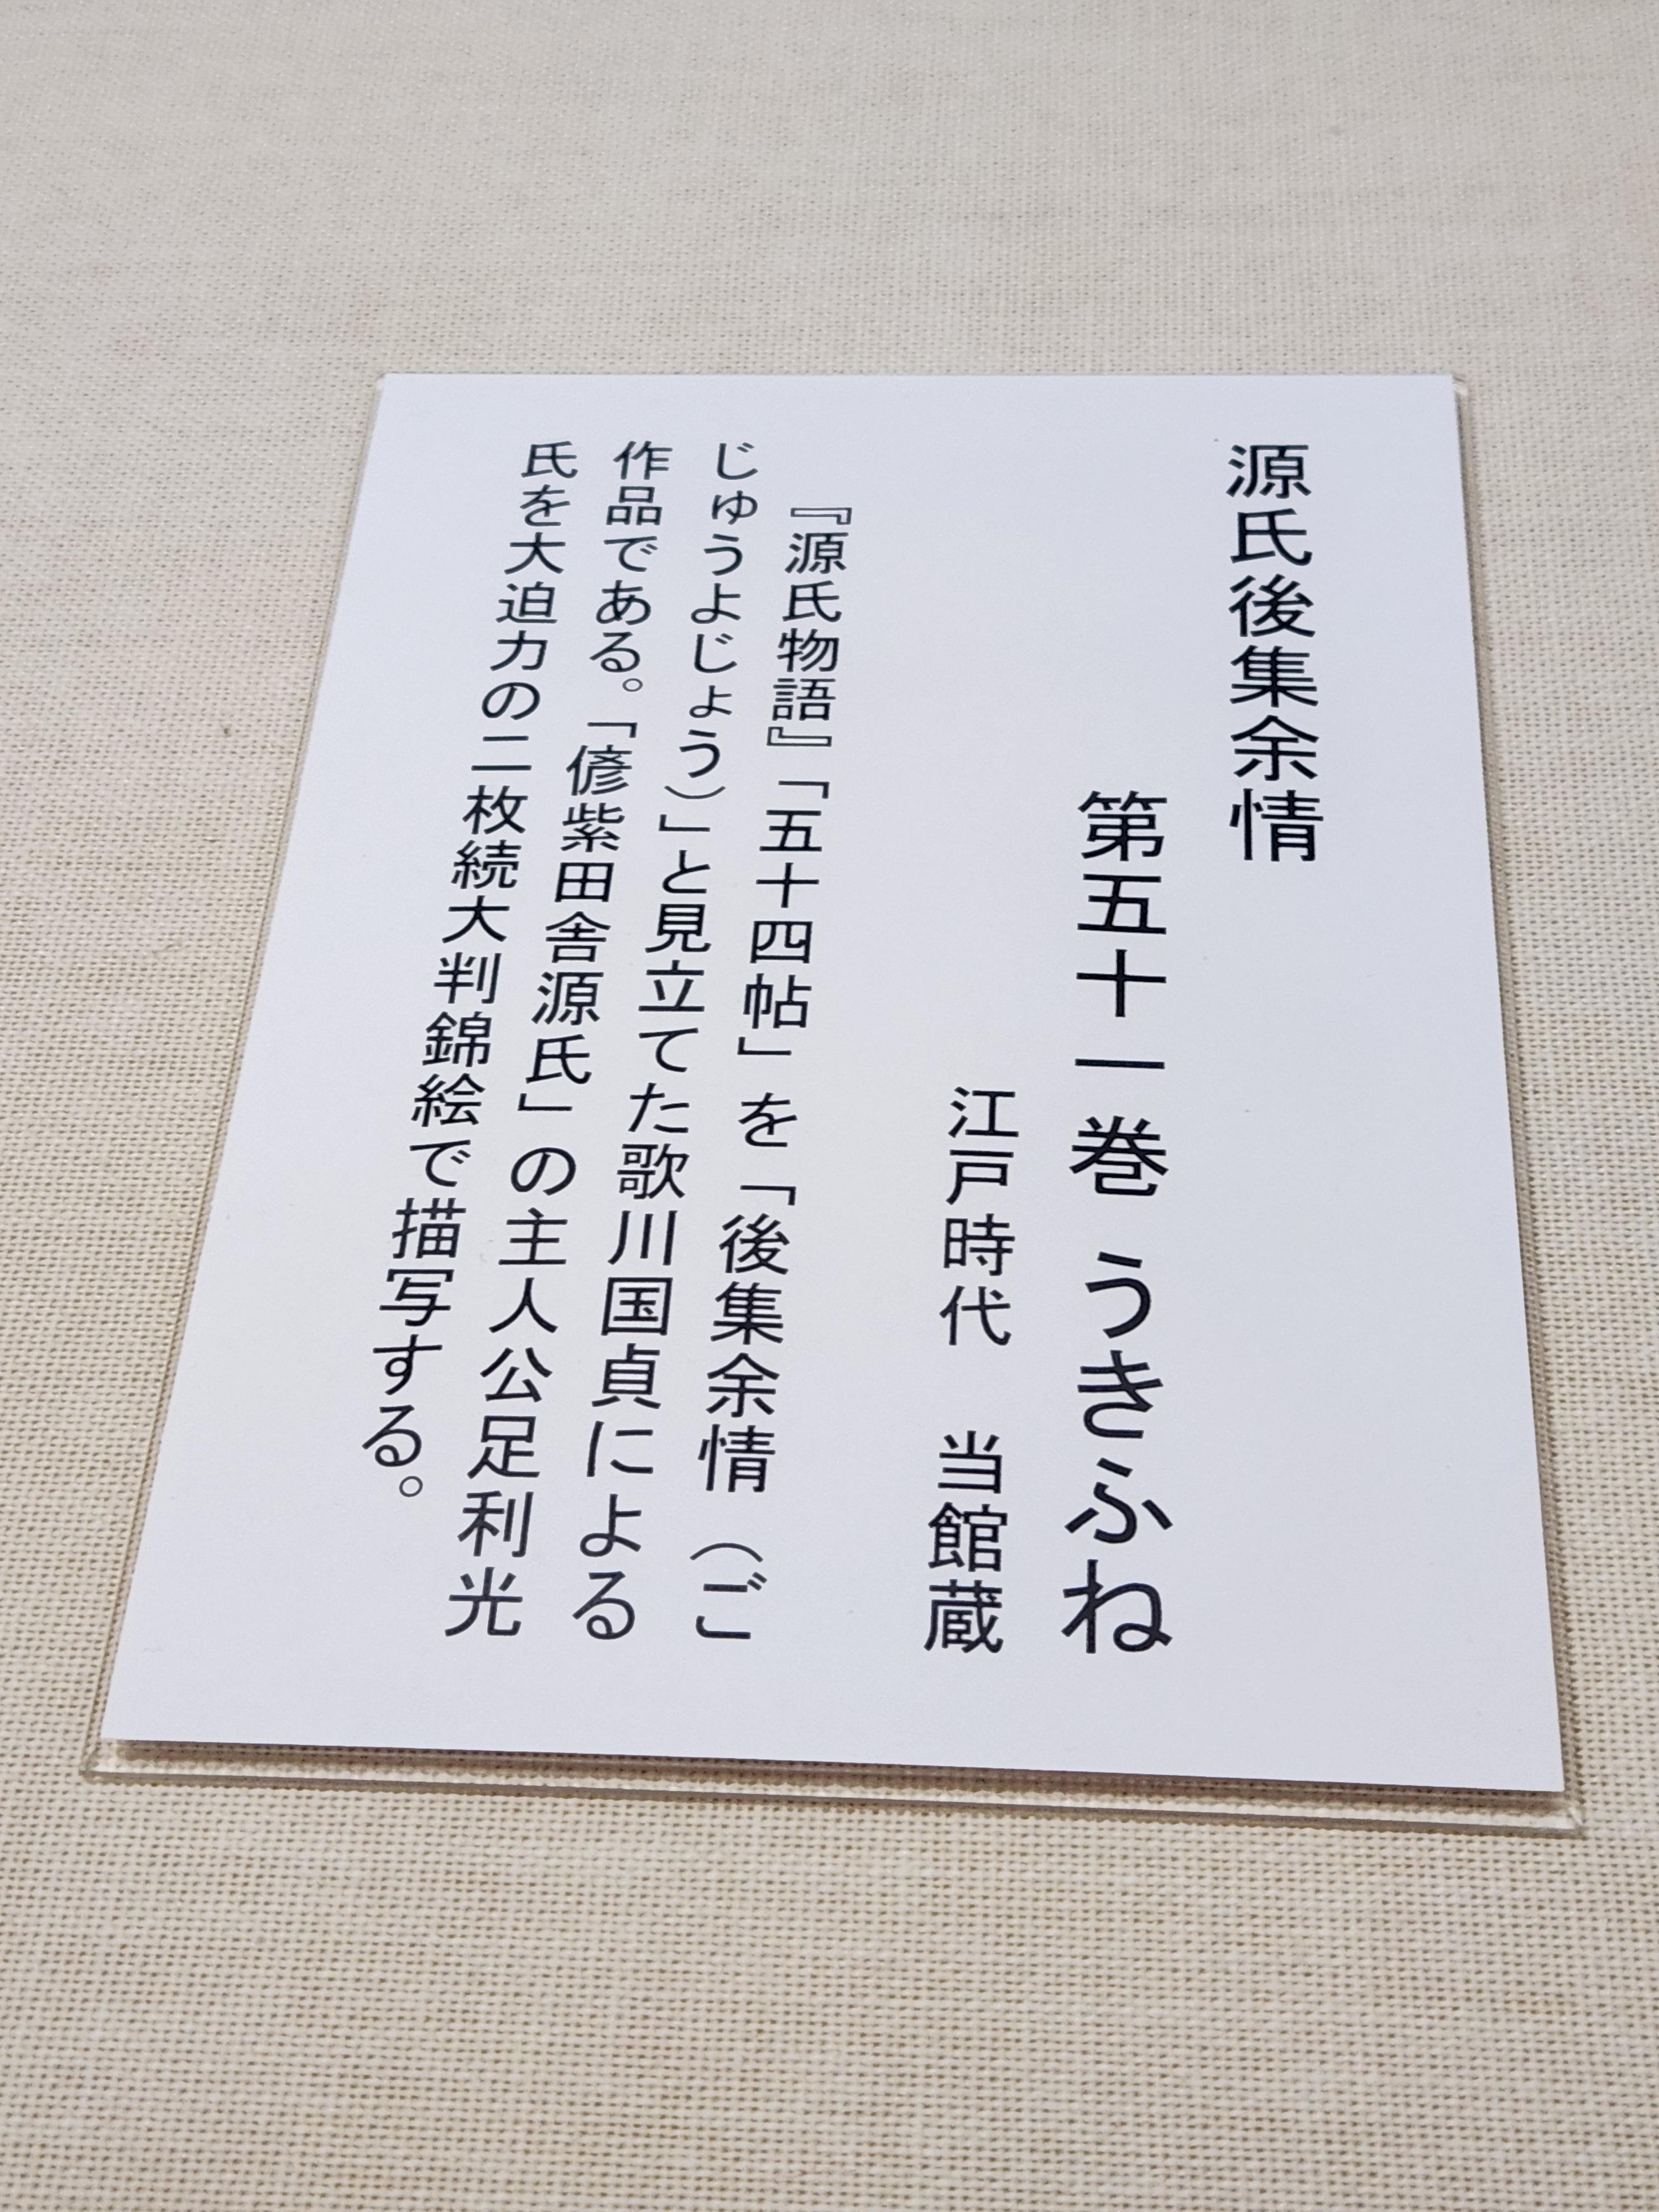 源氏後集余情
第五十一巻 うきふね
江戸時代　当館蔵
『源氏物語』「五十四帖」を「後集余情（ご
じゅうよじょう）」と見立てた歌川国貞による
作品である。「偐紫田舎源氏」の主人公足利光
氏を大迫力の二枚続大判錦絵で描写する。